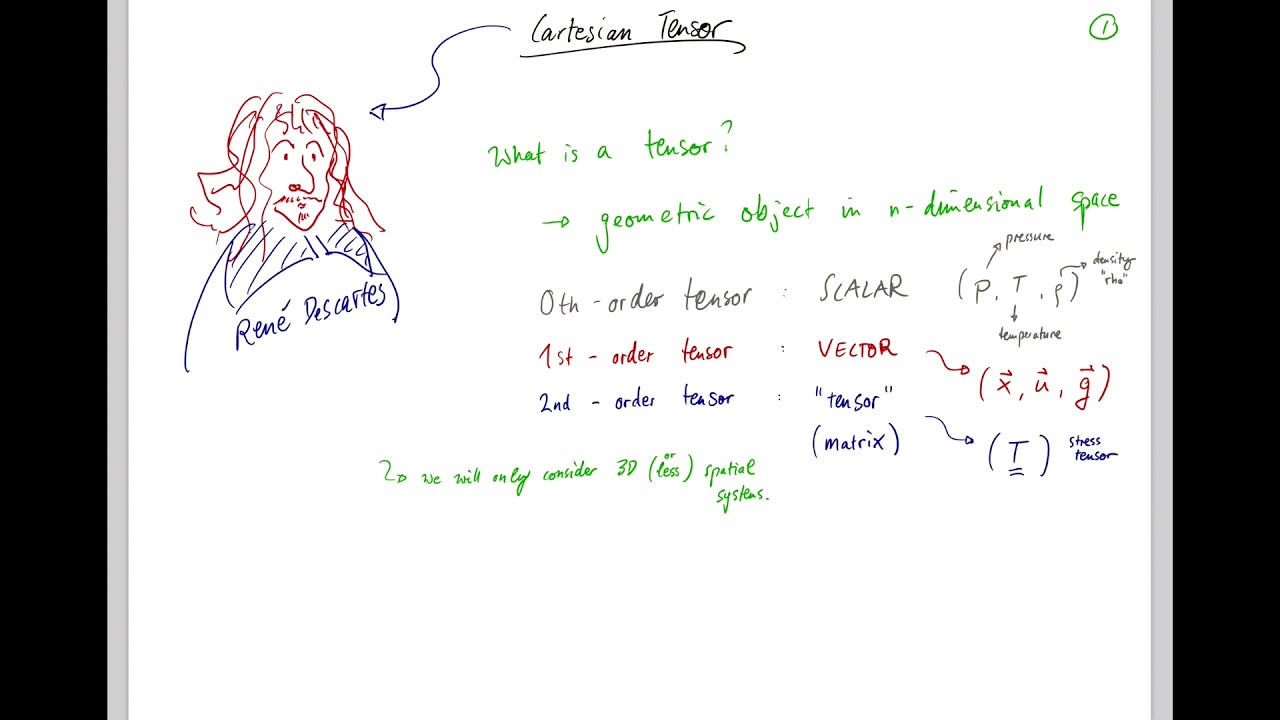 Cartesian Tensor
1
What is a tensor?
→ geometric object in n-dimensional space
pressure
density
"rho"
0th-order tensor : SCALAR (p, T, ρ)
temperature
1st - order tensor : VECTOR (x⃗, u⃗, g⃗)
2nd - order tensor : "tensor"
(matrix) (T) stress
tensor
René Descartes
we will only consider 3D (or less) spatial
systems.